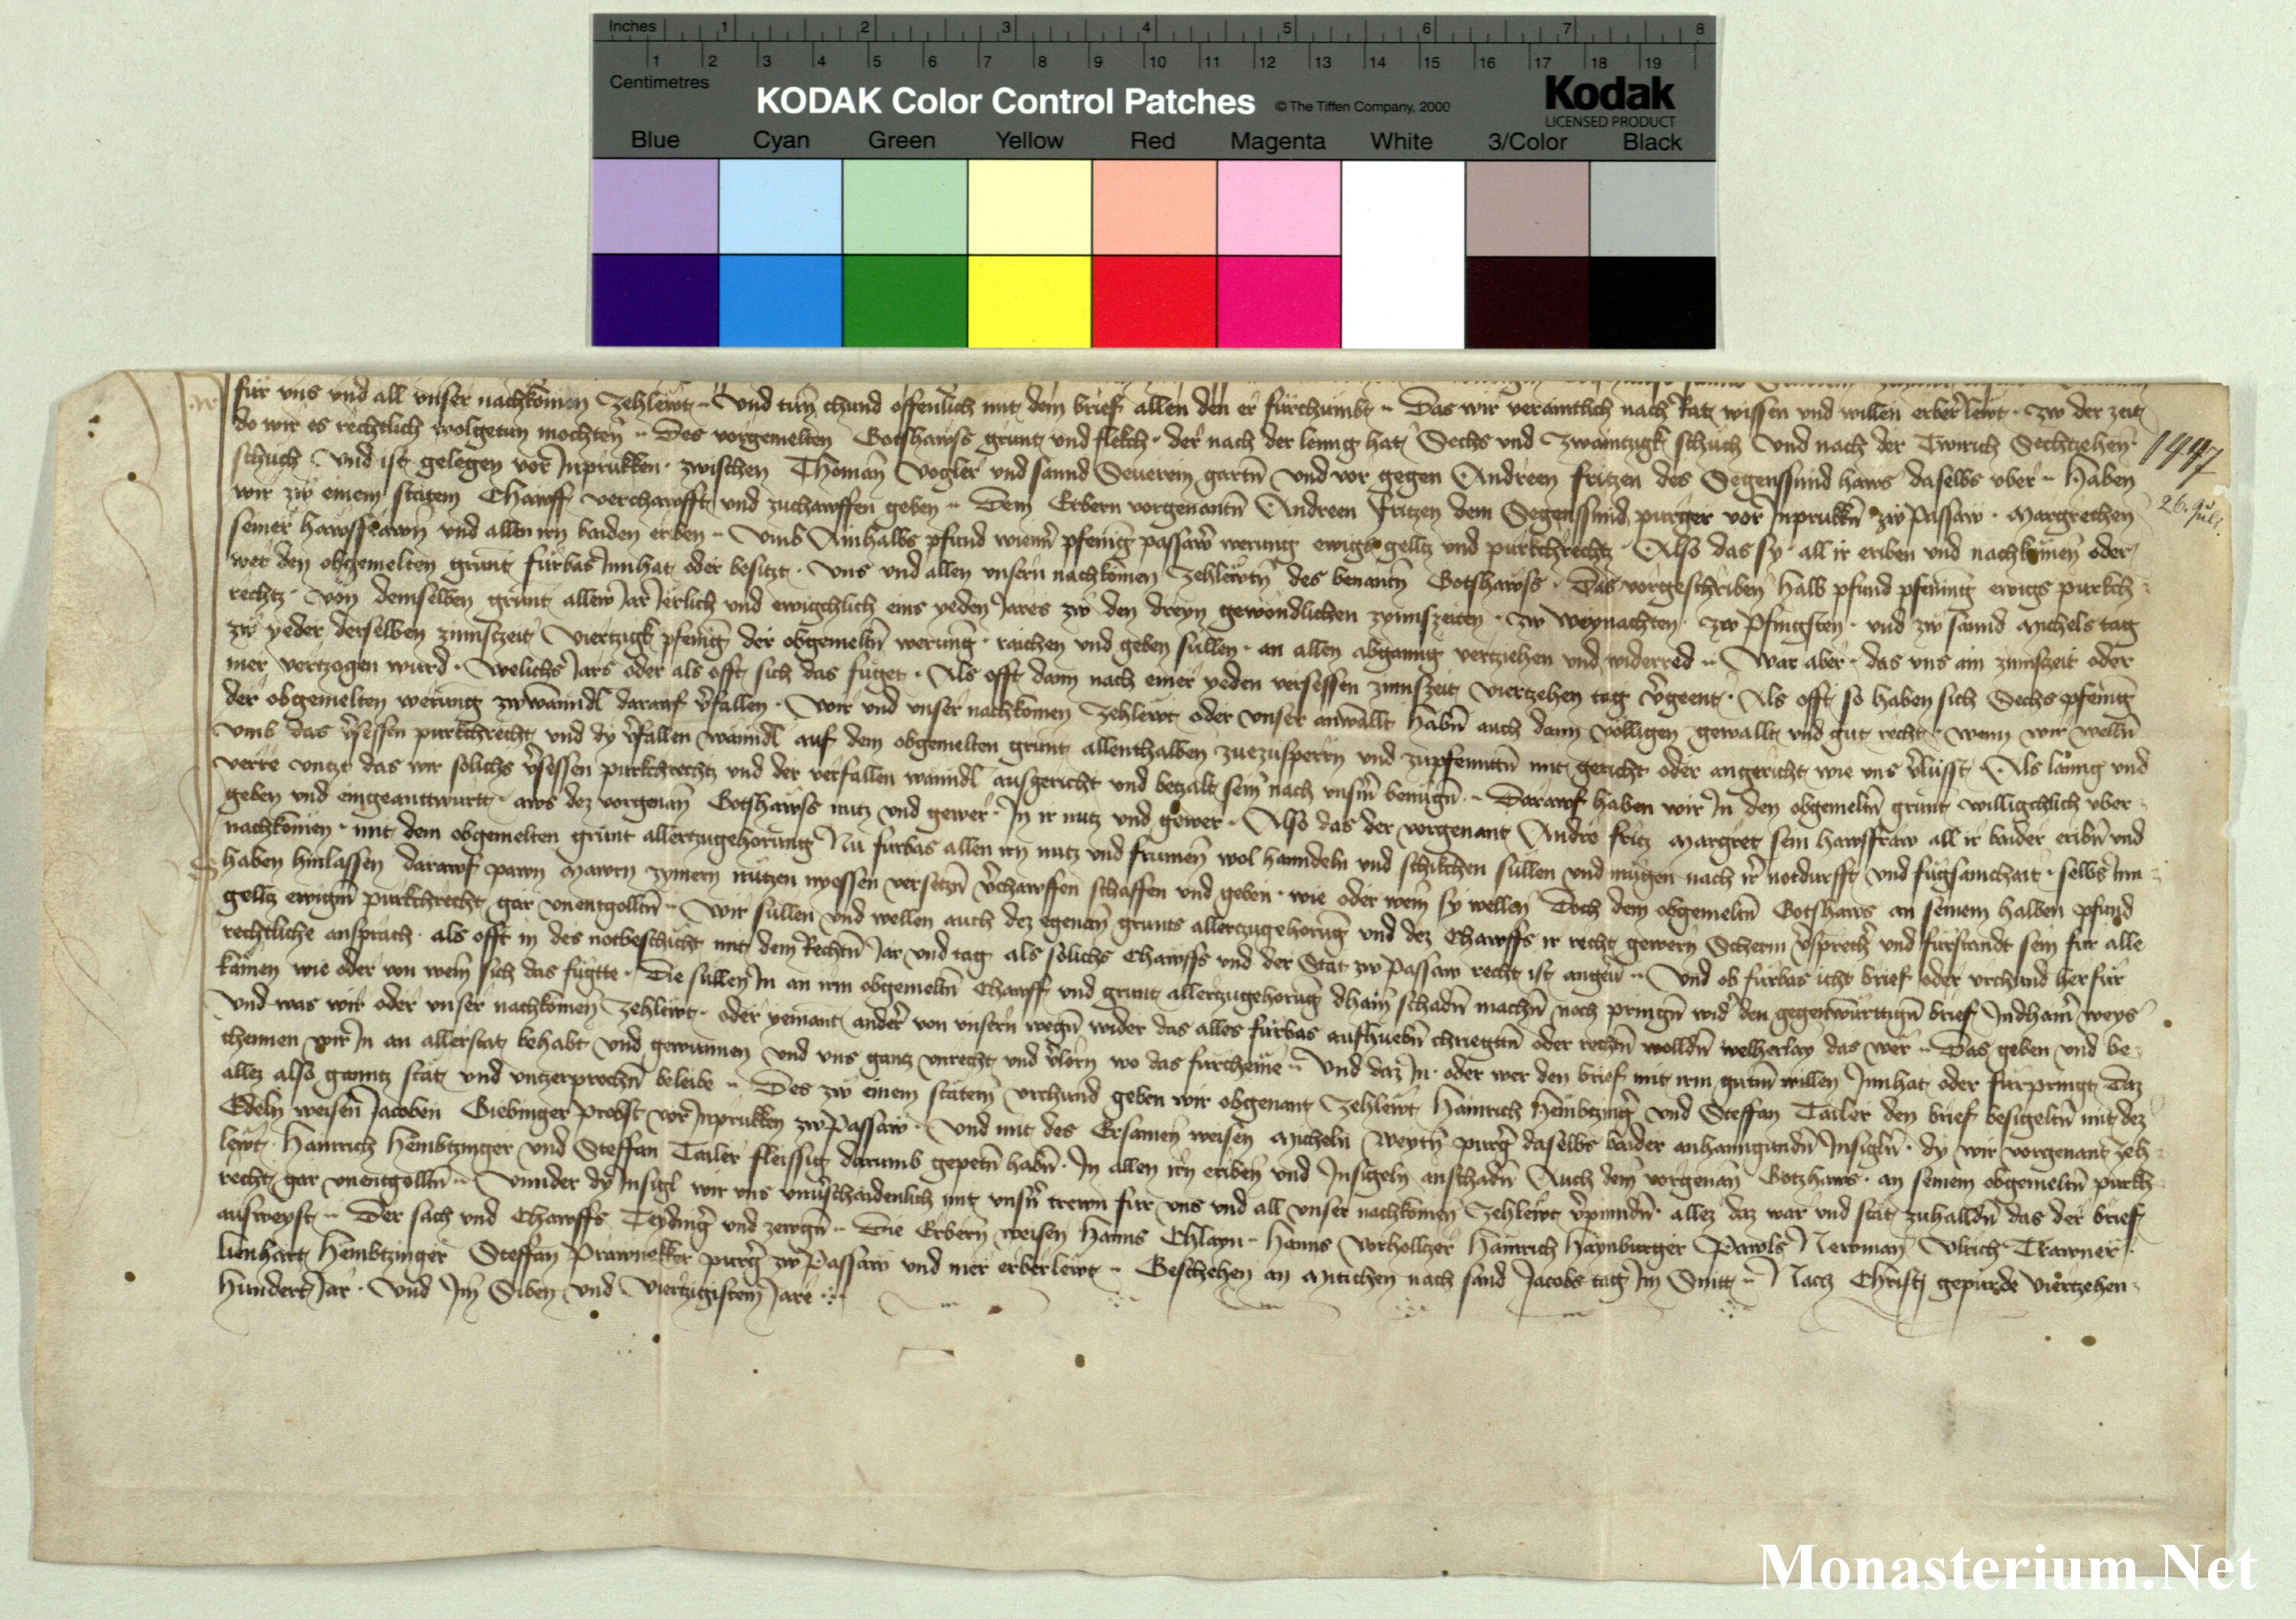 Inches 1 2 3 4 5 6 7 8
1 2 3 4 5 6 7 8 9 10 11 12 13 14 15 16 17 18 19
Centimetres
KODAK Color Control Patches © The Tiffen Company, 2000 Kodak
LICENSED PRODUCT
Blue Cyan Green Yellow Red Magenta White 3/Color Black
für vns vnd all vnser nachkomen Zehlewt Vnd tun chund offenlich mit dem brief allen den er fürchumbt Das wir veraintlich nach Rat wissen vnd willen erber lewt zw der zeit
do wir es rechtlich wolgetun mochten Des vorgemelten Gotshawss grunt vnd flekch der nach der lenng hat Sechs vnd Zwaintzigk schuch Vnd nach der Twirich Sechtzehen
schuch Vnd ist gelegen vor Inprukken zwischen Thoman Vogler vnd sannd Seuerein gartn vnd vor gegen Andreen fritzen des Segenssmid haws daselbs vber Haben
1447
wir zw einem statem Chawff verchawfft vnd zuchawffen geben Dem Erbern vorgenantn Andreen Fritzen dem Segenssmid purger vor Inprukkn zw Passaw Margrethen
26. Juli
seiner hawsfrawn vnd allen irn baiden eriben Vmb Ainhalbs pfund wienn pfening passawr werung ewigs gelltz vnd purkchrechtz Also das sy all ir eriben vnd nachkomen oder
wer den obgemelten grunt fürbas Innhat oder besitzt Vns vnd allen vnsern nachkomen Zehlewtn des benantn Gotshawss Das vorgeschriben halb pfund pfening ewigs purkch
rechtz Von demselben grunt allew Jar Jerlich vnd ewigchlich eins yeden Jares zw den dreyn gewondlichen zynnszeiten zw weynachten zw Pfingsten vnd zw sannd Michels tag
zw yeder derselben zinnszeit Viertzigk pfenig der obgemeltn werung raichen vnd geben sullen an allen abganng vertziehen vnd widerred War aber das vns ain zinnszeit oder
mer vertzogen wurd Welichs Jars oder als offt sich das füget Als offt dann nach einer yeden versessen zinnszeit Viertzehen tag vergeent Als offt so haben sich Sechs pfenig
der obgemelten werung zw wanndl darauf verfallen Wir vnd vnser nachkomen Zehlewt oder vnser anwallt habn auch dann volligen gewallt vnd gut recht wenn wir welln
Vmb das versessen purkchrecht vnd dy verfallen wanndl auf dem obgemelten grunt allenthalben zuezusperrn vnd zupfenntn mit gericht oder angericht wie vns verlusst Als lanng vnd
verre vntzt das wir solichs versessen purkchrechtz vnd der verfallen wanndl ausgericht vnd betzalt sein nach vnserm benugn Darawf haben wir In den obgemeltn grunt willigchlich vber
geben vnd eingeanttwurtt aws dez vorgenan Gotshawss nutz vnd gewer In ir nutz vnd gewer Also das der vorgenant Andre Fritz Margret sein hawsfraw all ir baider eribn vnd
nachkomen mit dem obgemelten grunt allertzugehorung Nu furbas allen irn nutz vnd frumen wol hanndeln vnd schikchen sullen vnd mugen nach ir notdurfft vnd fugsamchait selbs Inn
haben hinlassen darawf pawn Mawrn zymern nützen nyessen versetzn verchawffen schaffen vnd geben wie oder wem sy wellen Doch dem obgemeltn Gotshaws an seinem halben pfund
gelltz ewigm purkchrecht gar vnentgolltn Wir sullen vnd wellen auch dez egenan grunts allertzugehorug vnd dez Chawffs ir recht gewern Scherm versprech vnd fürstandt sein für alle
rechtliche ansprach als offt in des notbeschicht mit dem Rechtn Jar vnd tag als solichs Chawffs vnd der Stat zw Passaw recht ist angeu Vnd ob fürbas icht brief oder vrchund herfür
kamen wie oder von wem sich das fügtte Die sullen In an irm obgemeltn Chawff vnd grunt allertzugehorug dhain schadn machn noch pringn wider den gegenwürttign brief Indhainer weys
Vnd was wir oder vnser nachkomen Zehlewt oder yemant ander von vnsern wegn wider das alles fürbas aufhuebn chriegtn oder rechtn wolldn welherlay das wer Das geben vnd be
chennen wir In an allerstat behabt vnd gewunnen vnd vns gantz vnrecht vnd verlorn wo das furcheme Vnd daz In oder wer den brief mit irm gutm willen Innhat oder fürpringt Daz
allez also ganntz stat vnd vntzerprochn beleibe Des zw einem statem vrchund geben wir obgenant Zehlewt Hainrich Hembtzinger vnd Steffan Tailer den brief besigeltn mit dez
Edeln weisen Jacoben Giebinger Probst vor Inprukken zw Passaw Vnd mit des Ersamen weisen Micheln Weytn purger daselbs baider anhanngundn Insigln dy wir vorgenant Zeh
lewt Hainrich Hembtzinger vnd Steffan Tailer fleissig darumb gepetn habn In allen irn eriben vnd Insigeln anschadn Auch dem vorgenan Gotzhaws an seinem obgemeltn purkch
recht gar vnentgolltn Vnnder dy Insigl wir vns vnuerschaidenlich mit vnsern trewn für vns vnd all vnser nachkomen Zehlewt verpinndn allez daz war vnd stat zuhalldn das der brief
ausweyst Der sach vnd Chawffs Teyding vnd zewgn Die Erbern weisen Hanns Chlayn Hanns Vorholltzer Hainrich Haynburger Pawls Newman Vlrich Trawner
lienhart Hembtzinger Steffan Prawnekker purger zw Passaw vnd mer erberlewt Geschehen an Mitichen nach sand Jacobs tag Im Snitt Nach Christj gepurde Viertzehen
Hundert Jar Vnd Im Siben vnd Viertzigistem Jare
Monasterium.Net